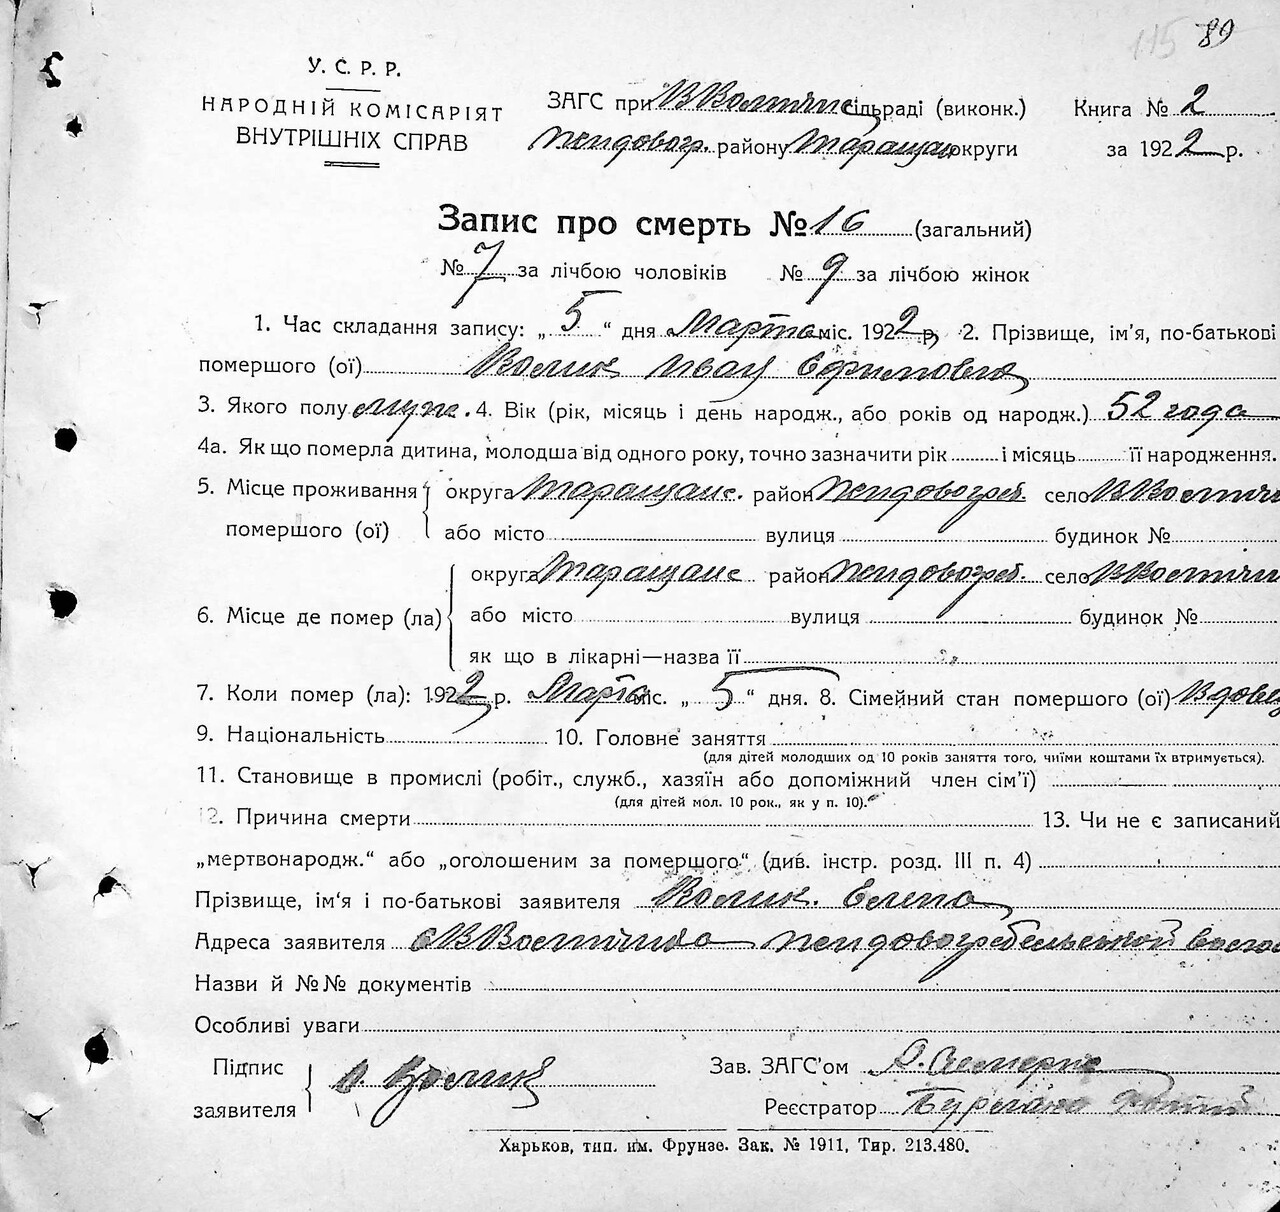 115 89
У. С. Р. Р.
НАРОДНІЙ КОМІСАРІЯТ
ВНУТРІШНІХ СПРАВ
ЗАГС при сільраді (виконк.)
району Таращан округи
Книга № 2
за 1922 р.
Запис про смерть № 16 (загальний)
№ 7 за лічбою чоловіків № 9 за лічбою жінок
1. Час складання запису: „ 5 “ дня Марта міс. 1922 р. 2. Прізвище, ім’я, по-батькові
помершого (ої) Волик Иван Ефимович
3. Якого полу муж. 4. Вік (рік, місяць і день народж., або років од народж.) 52 года
4а. Як що померла дитина, молодша від одного року, точно зазначити рік і місяць її народження.
5. Місце проживання округа Таращанс. район село
помершого (ої) або місто вулиця будинок №
округа Таращанс район село
6. Місце де помер (ла) або місто вулиця будинок №
як що в лікарні—назва її
7. Коли помер (ла): 1922 р. Марта міс. „ 5 “ дня. 8. Сімейний стан помершого (ої) Вдовец
9. Національність 10. Головне заняття
(для дітей молодших од 10 років заняття того, чиїми коштами їх втримується).
11. Становище в промислі (робіт., служб., хазяїн або допоміжний член сім’ї)
(для дітей мол. 10 рок., як у п. 10).
12. Причина смерти 13. Чи не є записаний
„мертвонародж.“ або „оголошеним за помершого“ (див. інстр. розд. III п. 4)
Прізвище, ім‘я і по-батькові заявителя Волик. Елена
Адреса заявителя
Назви й №№ документів
Особливі уваги
Підпис
заявителя Волик
Зав. ЗАГС’ом
Реєстратор
Харьков, тип. им. Фрунзе. Зак. № 1911, Тир. 213.480.